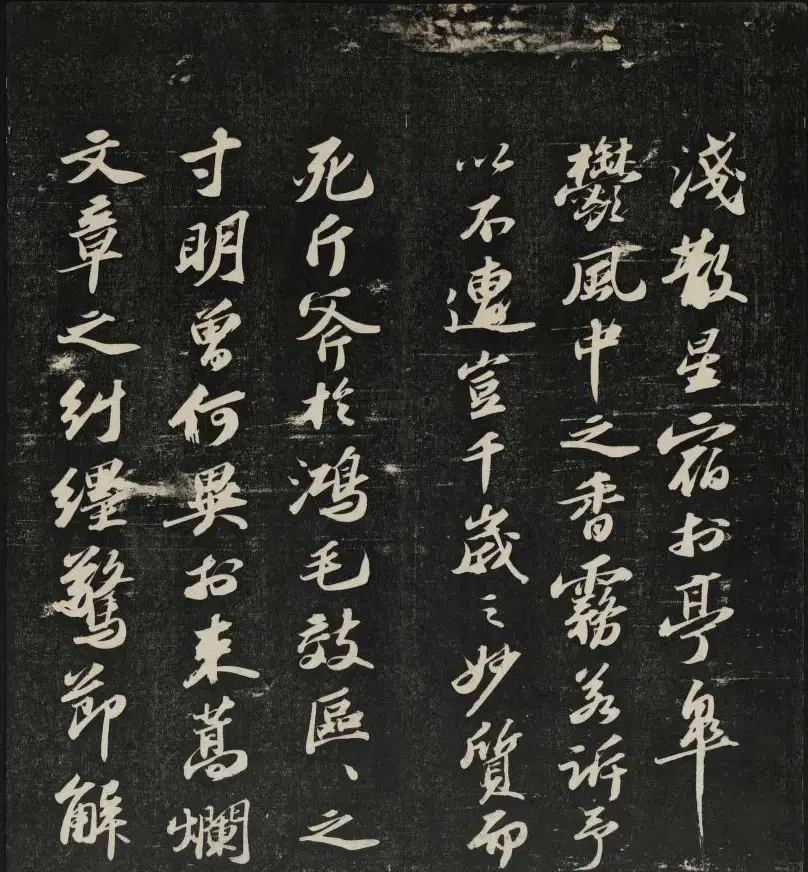 淺散星宿於亭皋
鬱風中之香霧若訴予
以不遭豈千歲之妙質而
死斤斧於鴻毛效區〻之
寸明曾何異於束蒿爛
文章之糾纆驚節解